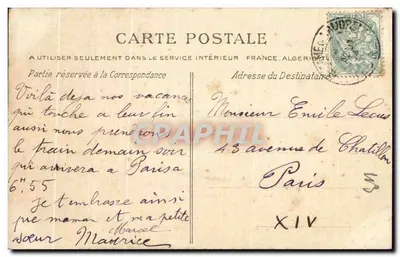 CARTE POSTALE
A UTILISER SEULEMENT DANS LE SERVICE INTÉRIEUR FRANCE, ALGERIE
Partie réservée à la Correspondance
Adresse du Destinataire
Voilà deja nos vacances
qui touche a leur fin
aussi nous prendrons
le train demain soir
qui arrivera a Paris a
6h55
Je t'embrasse ainsi
que maman et ma petite
sœur Maurice
Marcel
Monsieur Emile
43 avenue de Chatillon
Paris
XIV
CARTORAPHILIE